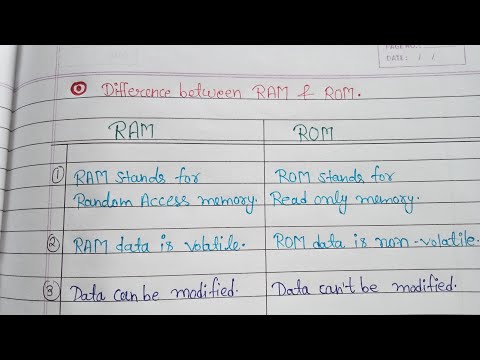 PAGE NO.:
DATE: / /
Difference between RAM & ROM.
RAM
ROM
① RAM stands for
Random Access memory.
ROM stands for
Read only memory.
② RAM data is volatile.
ROM data is non-volatile.
③ Data can be modified.
Data can't be modified.